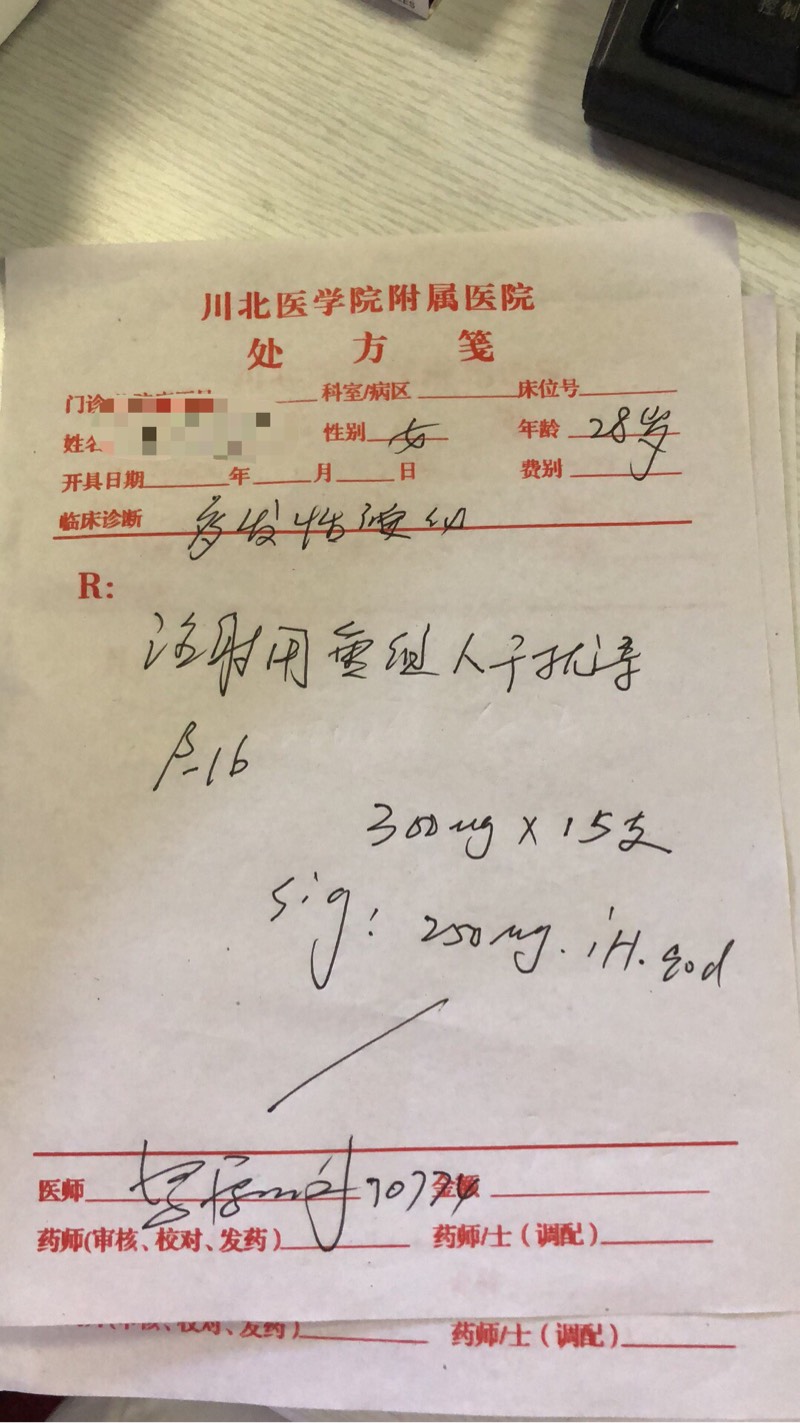 川北医学院附属医院
处 方 笺
门诊 科室/病区 床位号
姓名 性别 女 年龄 28岁
开具日期 年 月 日 费别
临床诊断 多发性硬化
R:
注射用重组人干扰素
β-1b
300ug × 15支
Sig: 250ug. iH. qod
医师 70774 金额
药师(审核、校对、发药) 药师/士(调配)
(审核、校对、发药) 药师/士(调配)